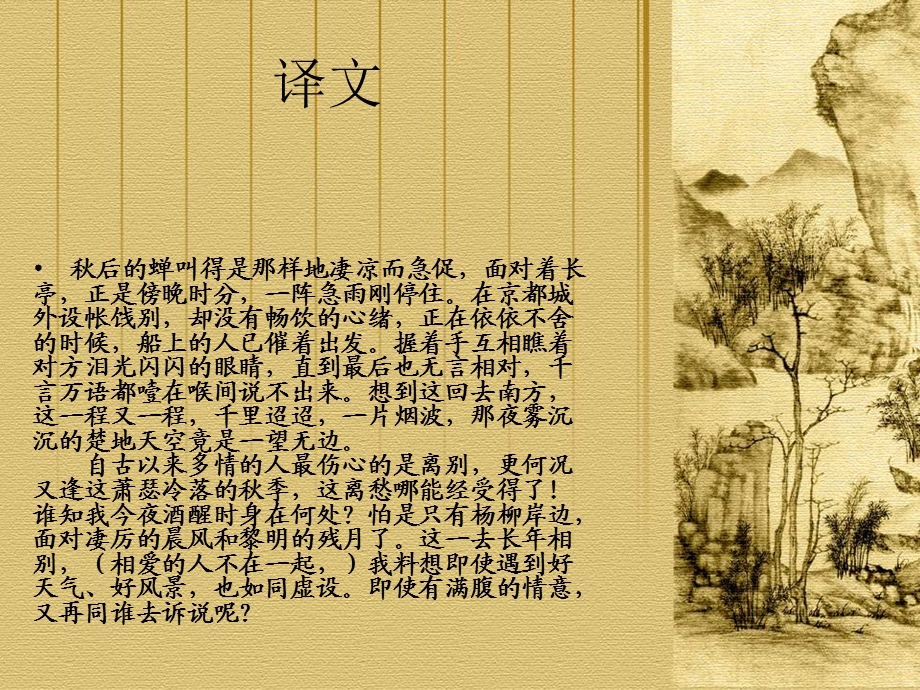 译文
• 秋后的蝉叫得是那样地凄凉而急促，面对着长
亭，正是傍晚时分，一阵急雨刚停住。在京都城
外设帐饯别，却没有畅饮的心绪，正在依依不舍
的时候，船上的人已催着出发。握着手互相瞧着
对方泪光闪闪的眼睛，直到最后也无言相对，千
言万语都噎在喉间说不出来。想到这回去南方，
这一程又一程，千里迢迢，一片烟波，那夜雾沉
沉的楚地天空竟是一望无边。
自古以来多情的人最伤心的是离别，更何况
又逢这萧瑟冷落的秋季，这离愁哪能经受得了！
谁知我今夜酒醒时身在何处？怕是只有杨柳岸边，
面对凄厉的晨风和黎明的残月了。这一去长年相
别，（相爱的人不在一起，）我料想即使遇到好
天气、好风景，也如同虚设。即使有满腹的情意，
又再同谁去诉说呢？